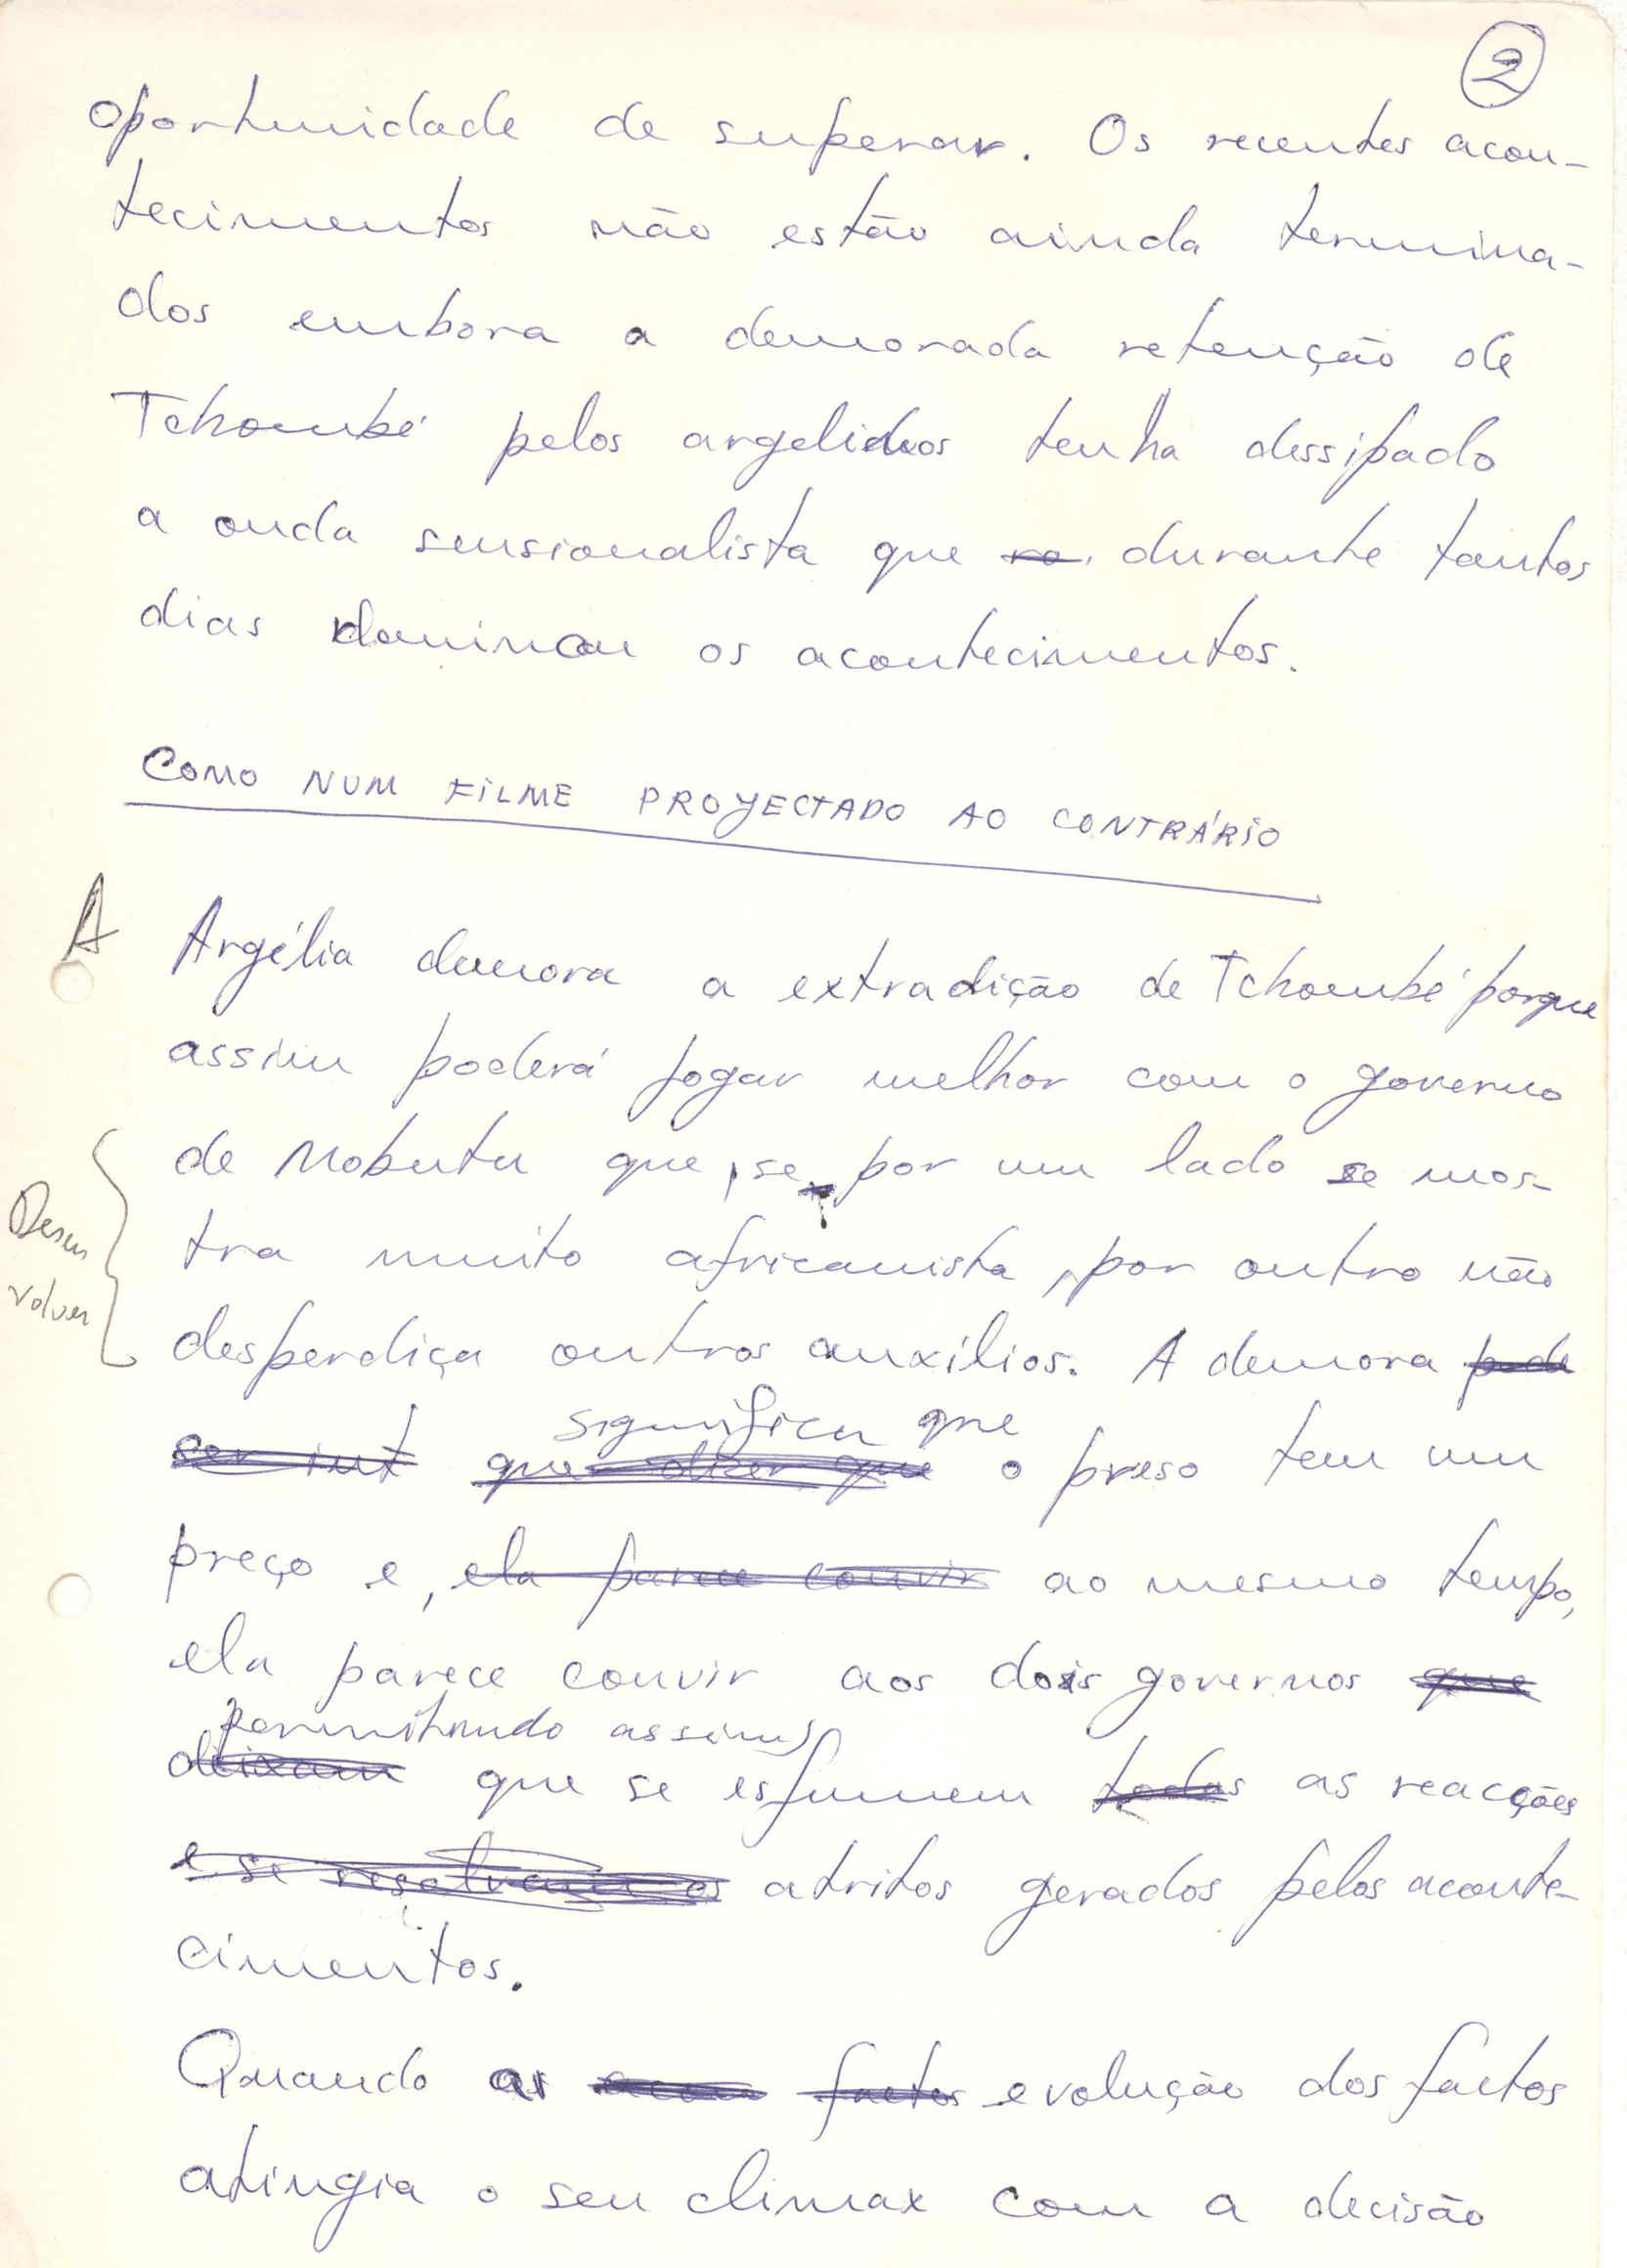 2
oportunidade de superar. Os recentes acon-
tecimentos não estão ainda termina-
dos embora a demorada retenção de
Tchombé pelos argelinos tenha dissipado
a onda sensionalista que ra durante tantos
dias dominou os acontecimentos.
COMO NUM FILME PROYECTADO AO CONTRÁRIO
A Argélia demora a extradição de Tchombé porque
assim poderá jogar melhor com o governo
de Mobutu que, se, por um lado se mos-
tra muito africanista, por outro não
Desen
volver
desperdiça outros auxílios. A demora pode
significa que
ser int quer dizer que o preso tem um
preço e, ela parece convir ao mesmo tempo,
ela parece convir aos dois governos que
permitindo assim
deixam que se esfumem todas as reacções
e se resolvam os atritos gerados pelos aconte-
cimentos.
Quando as factos evolução dos factos
atingia o seu climax com a decisão